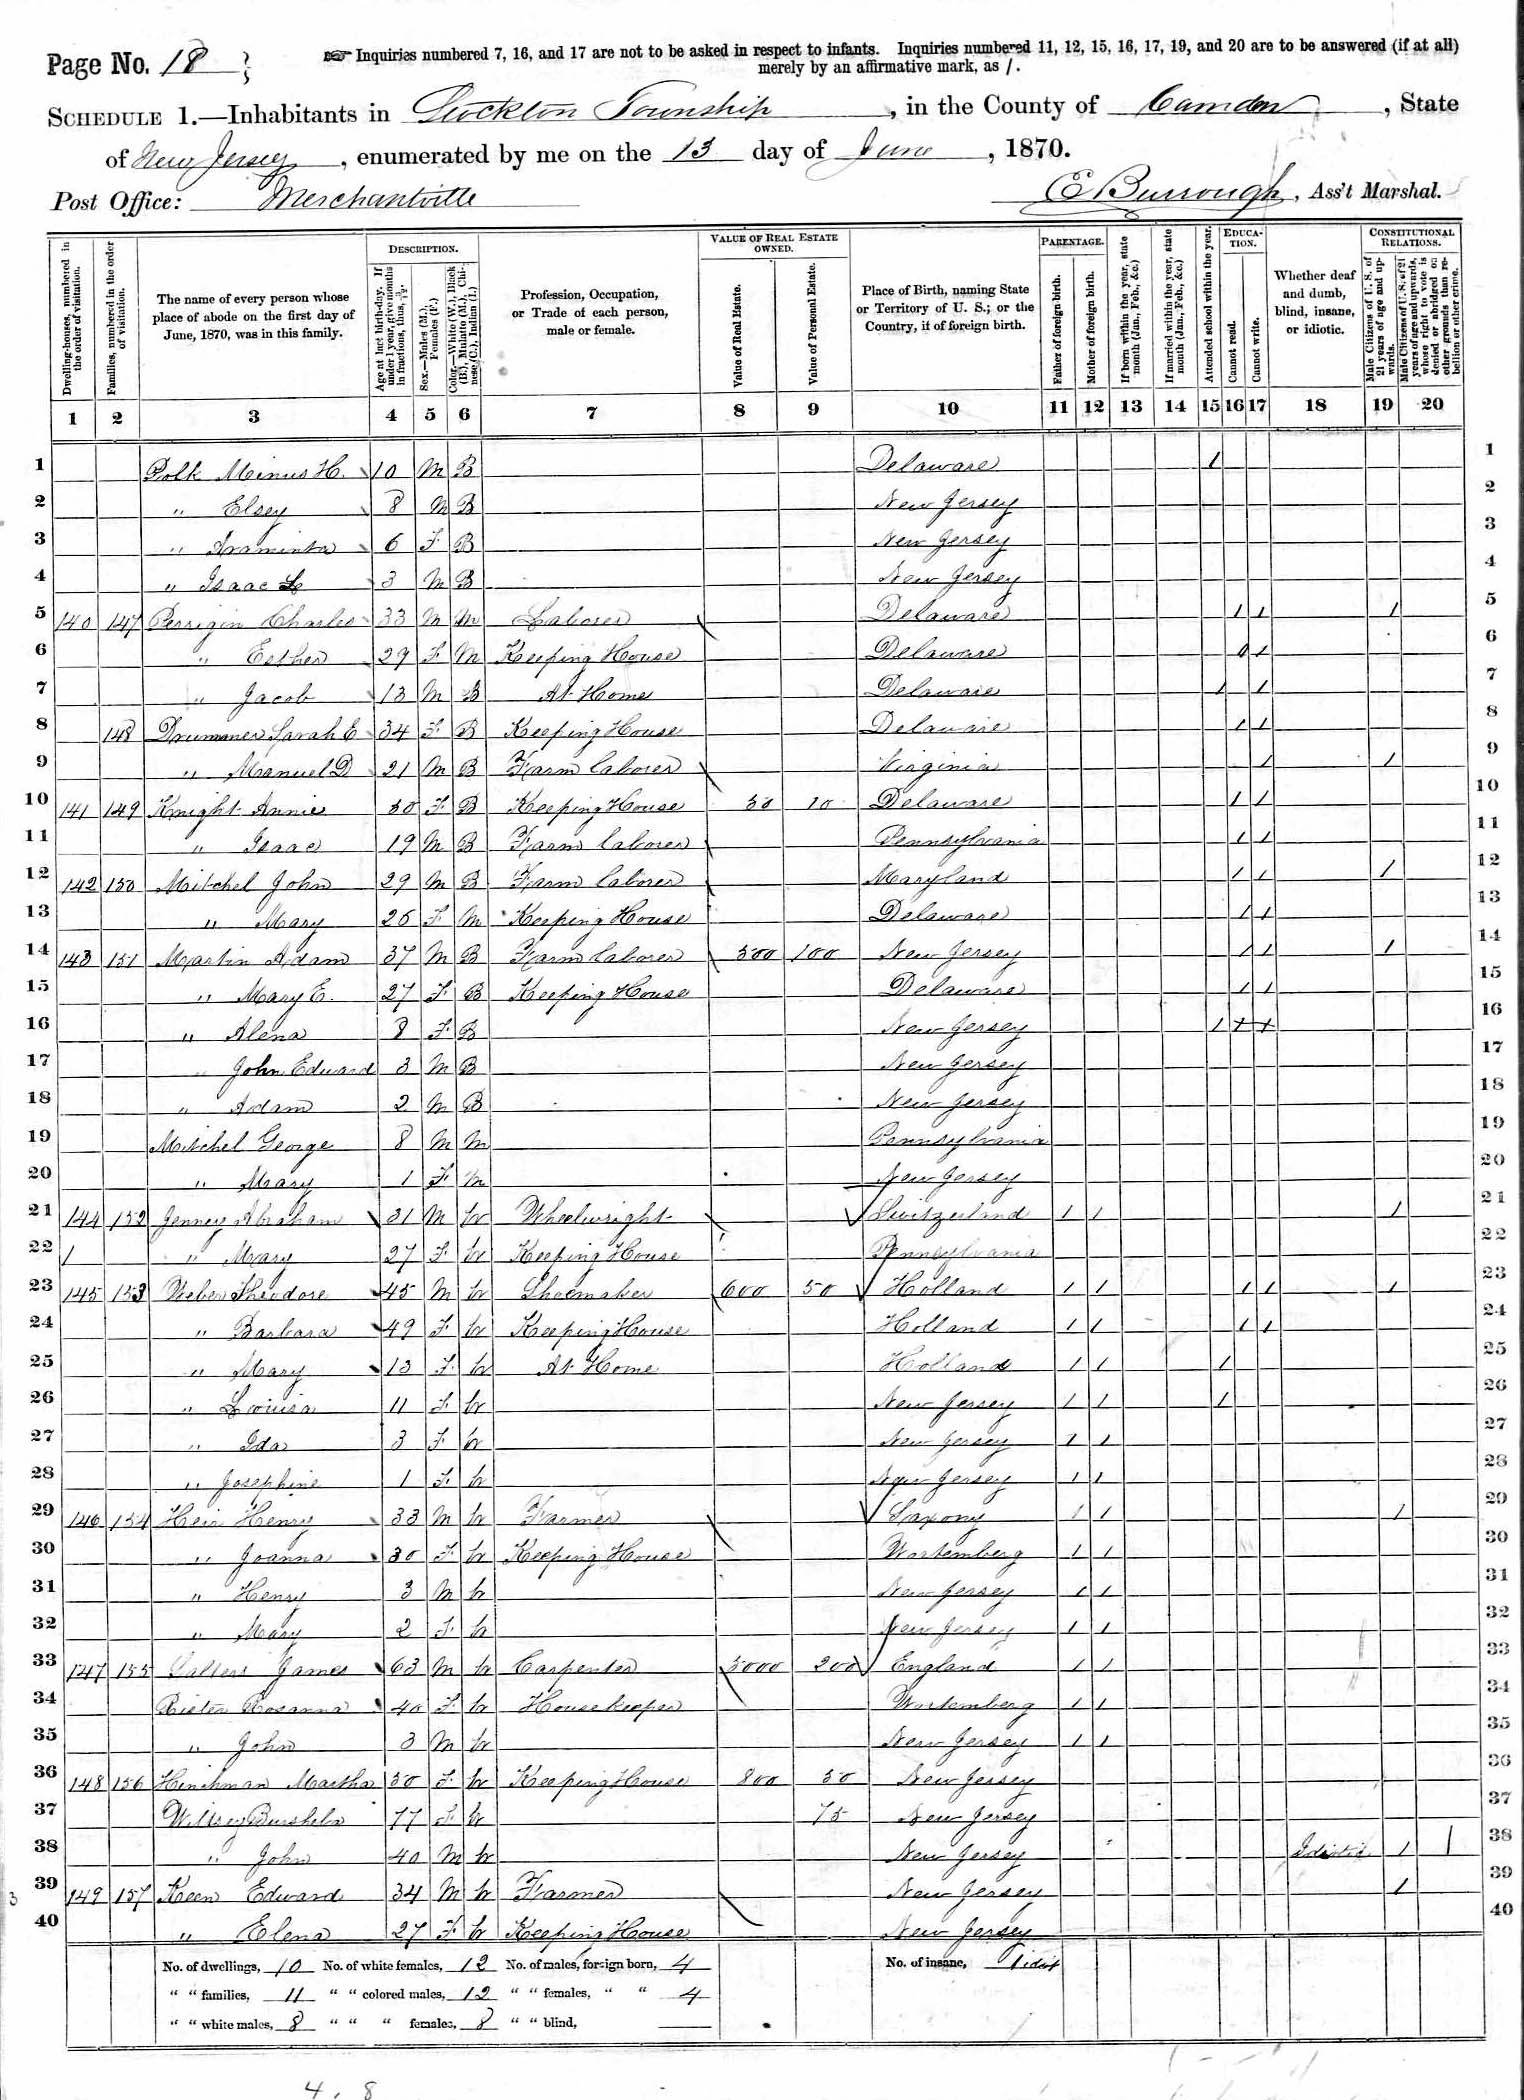 Page No. 18
☞ Inquiries numbered 7, 16, and 17 are not to be asked in respect to infants. Inquiries numbered 11, 12, 15, 16, 17, 19, and 20 are to be answered (if at all)
merely by an affirmative mark, as /.
SCHEDULE 1.—Inhabitants in Stockton Township, in the County of Camden, State
of New Jersey, enumerated by me on the 13 day of June, 1870.
Post Office: Merchantville
E Burrough, Ass't Marshal.
Dwelling-houses, numbered in the order of visitation.
Families, numbered in the order of visitation.
The name of every person whose place of abode on the first day of June, 1870, was in this family.
DESCRIPTION.
Age at last birth-day. If under 1 year, give months in fractions, thus, 3/12.
Sex.—Males (M.), Females (F.)
Color.—White (W.), Black (B.), Mulatto (M.), Chinese, (C.), Indian (I.)
Profession, Occupation, or Trade of each person, male or female.
VALUE OF REAL ESTATE OWNED.
Value of Real Estate.
Value of Personal Estate.
Place of Birth, naming State or Territory of U. S.; or the Country, if of foreign birth.
PARENTAGE.
Father of foreign birth.
Mother of foreign birth.
If born within the year, state month (Jan., Feb., &c.)
If married within the year, state month (Jan., Feb., &c.)
Attended school within the year.
EDUCATION.
Cannot read.
Cannot write.
Whether deaf and dumb, blind, insane, or idiotic.
CONSTITUTIONAL RELATIONS.
Male Citizens of U. S. of 21 years of age and upwards.
Male Citizens of U. S. of 21 years of age and upwards, whose right to vote is denied or abridged on other grounds than rebellion or other crime.
1 2 3 4 5 6 7 8 9 10 11 12 13 14 15 16 17 18 19 20
1 Polk Minus H. 10 M B Delaware / 1
2 " Elsey 8 M B New Jersey 2
3 " Araminta 6 F B New Jersey 3
4 " Isaac 3 M B New Jersey 4
5 140 147 Perrigin Charles 33 M M Laborer Delaware / / / 5
6 " Esther 29 F M Keeping House Delaware / / 6
7 " Jacob 13 M B At Home Delaware / / 7
8 148 Drummer Sarah E 34 F B Keeping House Delaware / / 8
9 " Manuel D 21 M B Farm laborer Virginia / / 9
10 141 149 Knight Annie 50 F B Keeping House 50 10 Delaware / / 10
11 " Isaac 19 M B Farm laborer Pennsylvania / / 11
12 142 150 Mitchel John 29 M B Farm laborer Maryland / / / 12
13 " Mary 26 F M Keeping House Delaware / / 13
14 143 151 Martin Adam 37 M B Farm laborer 500 100 New Jersey / / / 14
15 " Mary E. 27 F B Keeping House Delaware / / 15
16 " Alena 8 F B New Jersey / / / 16
17 " John Edward 3 M B New Jersey 17
18 " Adam 2 M B New Jersey 18
19 Mitchel George 8 M M Pennsylvania 19
20 " Mary 1 F M New Jersey 20
21 144 152 Jenney Abraham 31 M W Wheelwright Switzerland / / / 21
22 / " Mary 27 F W Keeping House Pennsylvania 22
23 145 153 Weber Theodore 45 M W Shoemaker 600 50 Holland / / / / / 23
24 " Barbara 49 F W Keeping House Holland / / / / 24
25 " Mary 13 F W At Home Holland / / / 25
26 " Louisa 11 F W New Jersey / / / 26
27 " Ida 3 F W New Jersey / / 27
28 " Josephine 1 F W New Jersey / / 28
29 146 154 Heir Henry 33 M W Farmer Saxony / / / 29
30 " Joanna 30 F W Keeping House Wortemberg / / 30
31 " Henry 3 M W New Jersey / / 31
32 " Mary 2 F W New Jersey / / 32
33 147 155 Salters James 63 M W Carpenter 5000 200 England / / 33
34 Rister Rosanna 40 F W Housekeeper Wortemberg / / 34
35 " John 3 M W New Jersey / / 35
36 148 156 Hinchman Martha 50 F W Keeping House 800 50 New Jersey 36
37 77 F W 75 New Jersey 37
38 " John 40 M W New Jersey Idiotic / / 38
39 149 157 Keen Edward 34 M W Farmer New Jersey / 39
40 " Elena 27 F W Keeping House New Jersey 40
No. of dwellings, 10 No. of white females, 12 No. of males, foreign born, 4 No. of insane, 1 idiot
" " families, 11 " " colored males, 12 " " females, " " 4
" " white males, 8 " " " females, 8 " " blind,
3
4, 8